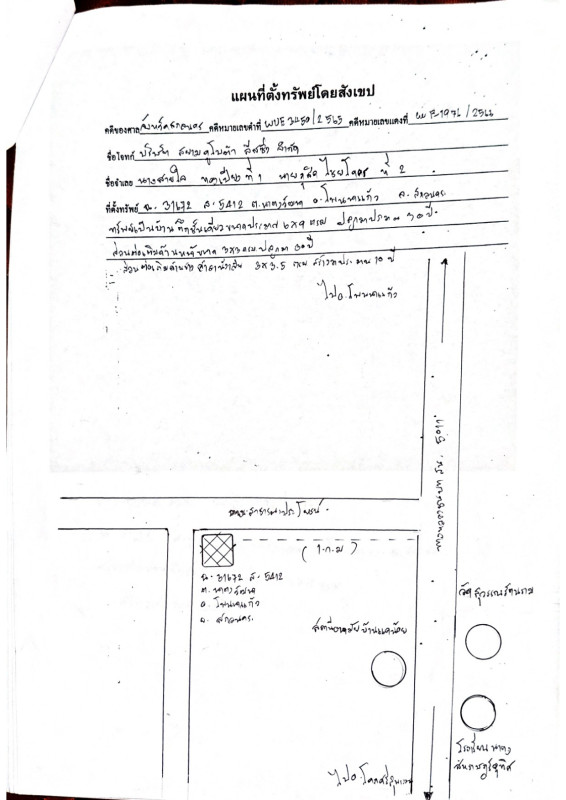 แผนที่ตั้งทรัพย์โดยสังเขป
คดีของศาล จังหวัดสกลนคร คดีหมายเลขดำที่ ผบE3450/2565 คดีหมายเลขแดงที่ ผบE1976/2566
ชื่อโจทก์ บริษัท สยามคูโบต้า ลีสซิ่ง จำกัด
ชื่อจำเลย นางสายใจ ที่ 1 นาย ที่ 2
ที่ตั้งทรัพย์ น.31672 ล.5412 ต. อ.โพนนาแก้ว จ.สกลนคร
ทรัพย์เป็นบ้านตึกชั้นเดียวขนาดประมาณ 6x9 เมตร ปลูกมาประมาณ 30 ปี
ส่วนต่อเติมด้านหน้าขนาด 3x3 เมตร ปลูกมา 30 ปี
ส่วนต่อเติมด้านข้าง 3x3.5 เมตร ประมาณ 10 ปี
ไป อ.โพนนาแก้ว
ถนนสาธารณประโยชน์
(1 ก.ม)
น.31672 ล.5412
ต.
อ.โพนนาแก้ว
จ.สกลนคร
วัดสุวรรณรัตนาราม
โรงเรียน
ไป อ.โคกศรีสุพรรณ